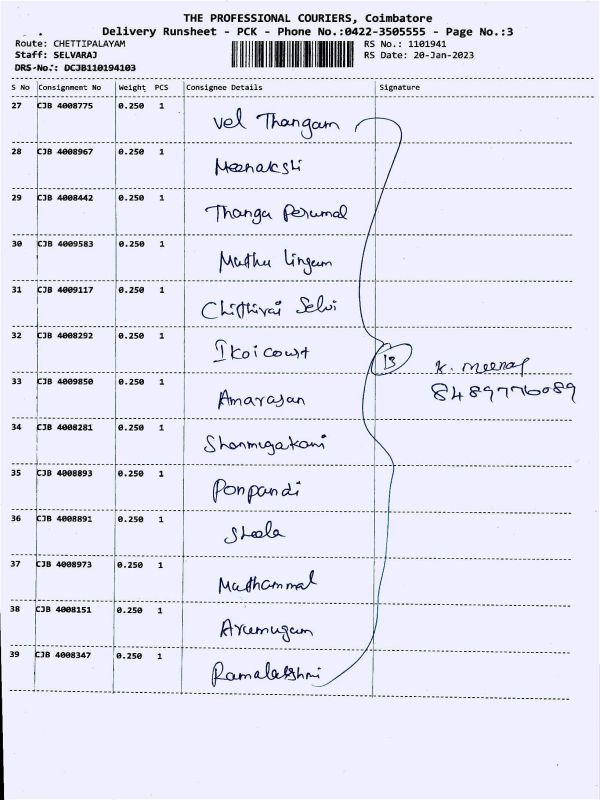 THE PROFESSIONAL COURIERS, Coimbatore
Delivery Runsheet - PCK - Phone No.:0422-3505555 - Page No.:3
Route: CHETTIPALAYAM RS No.: 1101941
Staff: SELVARAJ RS Date: 20-Jan-2023
DRS-No.: DCJB110194103
S No Consignment No Weight PCS Consignee Details Signature
27 CJB 4008775 0.250 1 Vel Thangam
28 CJB 4008967 0.250 1 Meenakshi
29 CJB 4008442 0.250 1 Thanga Perumal
30 CJB 4009583 0.250 1 Muthu Lingam
31 CJB 4009117 0.250 1 Chithirai Selvi
32 CJB 4008292 0.250 1 Ikoicourt 13
K. Meenaj
33 CJB 4009850 0.250 1 Amarasan 8489776089
34 CJB 4008281 0.250 1 Shanmugakani
35 CJB 4008893 0.250 1 Ponpandi
36 CJB 4008891 0.250 1 Sheela
37 CJB 4008973 0.250 1 Muthammal
38 CJB 4008151 0.250 1 Arumugam
39 CJB 4008347 0.250 1 Ramalakshmi